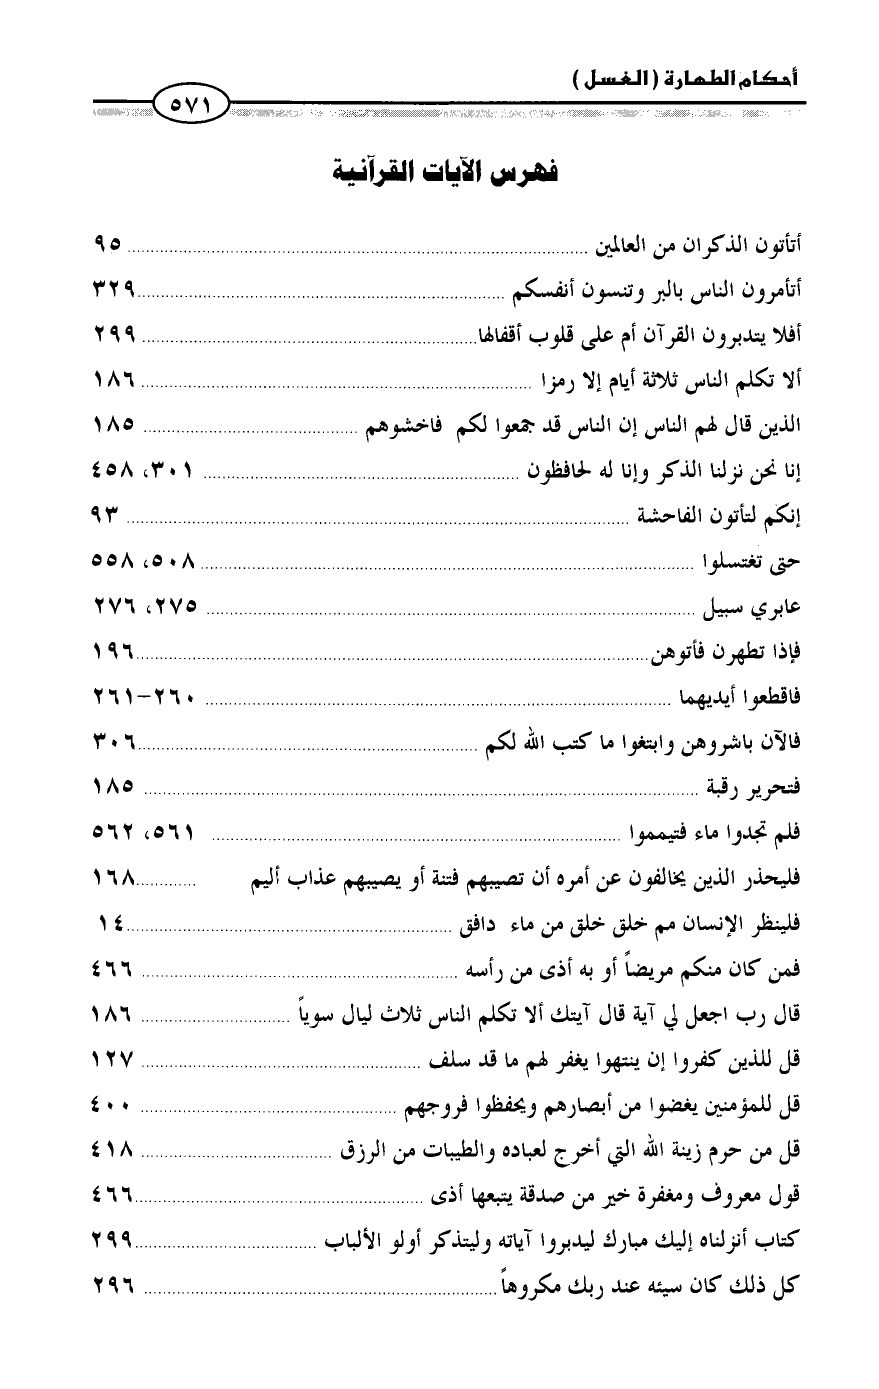 أحكام الطهارة (الغسل)
٥٧١
فهرس الآيات القرآنية
أتأتون الذكران من العالمين ........ ٩٥
أتأمرون الناس بالبر وتنسون أنفسكم ........ ٣٢٩
أفلا يتدبرون القرآن أم على قلوب أقفالها ........ ٢٩٩
ألا تكلم الناس ثلاثة أيام إلا رمزا ........ ١٨٦
الذين قال لهم الناس إن الناس قد جمعوا لكم فاخشوهم ........ ١٨٥
إنا نحن نزلنا الذكر وإنا له لحافظون ........ ٣٠١، ٤٥٨
إنكم لتأتون الفاحشة ........ ٩٣
حتى تغتسلوا ........ ٥٠٨، ٥٥٨
عابري سبيل ........ ٢٧٥، ٢٧٦
فإذا تطهرن فأتوهن ........ ١٩٦
فاقطعوا أيديهما ........ ٢٦٠-٢٦١
فالآن باشروهن وابتغوا ما كتب الله لكم ........ ٣٠٦
فتحرير رقبة ........ ١٨٥
فلم تجدوا ماء فتيمموا ........ ٥٦١، ٥٦٢
فليحذر الذين يخالفون عن أمره أن تصيبهم فتنة أو يصيبهم عذاب أليم ........ ١٦٨
فلينظر الإنسان مم خلق خلق من ماء دافق ........ ١٤
فمن كان منكم مريضاً أو به أذى من رأسه ........ ٤٦٦
قال رب اجعل لي آية قال آيتك ألا تكلم الناس ثلاث ليال سوياً ........ ١٨٦
قل للذين كفروا إن ينتهوا يغفر لهم ما قد سلف ........ ١٢٧
قل للمؤمنين يغضوا من أبصارهم ويحفظوا فروجهم ........ ٤٠٠
قل من حرم زينة الله التي أخرج لعباده والطيبات من الرزق ........ ٤١٨
قول معروف ومغفرة خير من صدقة يتبعها أذى ........ ٤٦٦
كتاب أنزلناه إليك مبارك ليدبروا آياته وليتذكر أولو الألباب ........ ٢٩٩
كل ذلك كان سيئه عند ربك مكروهاً ........ ٢٩٦